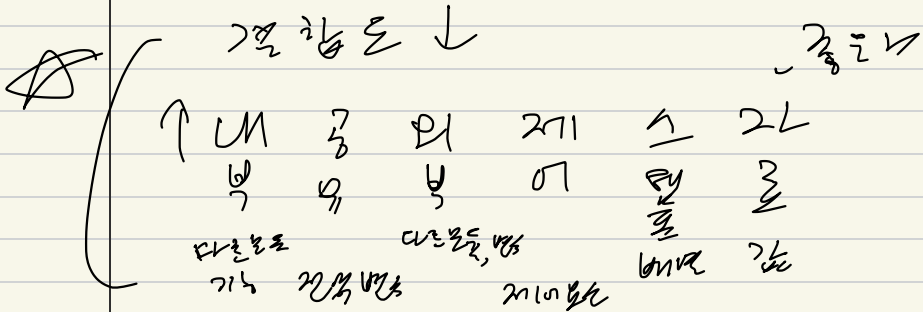 결합도 ↓
좋드나
↑ 내 공 외 제 스 자
부 유 부 어 탬 료
프
다른모듈 다른모듈, 변수
기능 전역변수 제어요소 배열 값